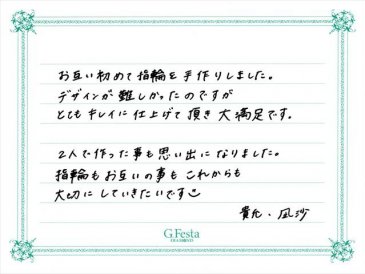 お互い初めて指輪を手作りしました。
デザインが難しかったのですが
とてもキレイに仕上げて頂き大満足です。
2人で作った事も思い出になりました。
指輪もお互いの事もこれからも
大切にしていきたいです
貴允・凪沙
G.Festa